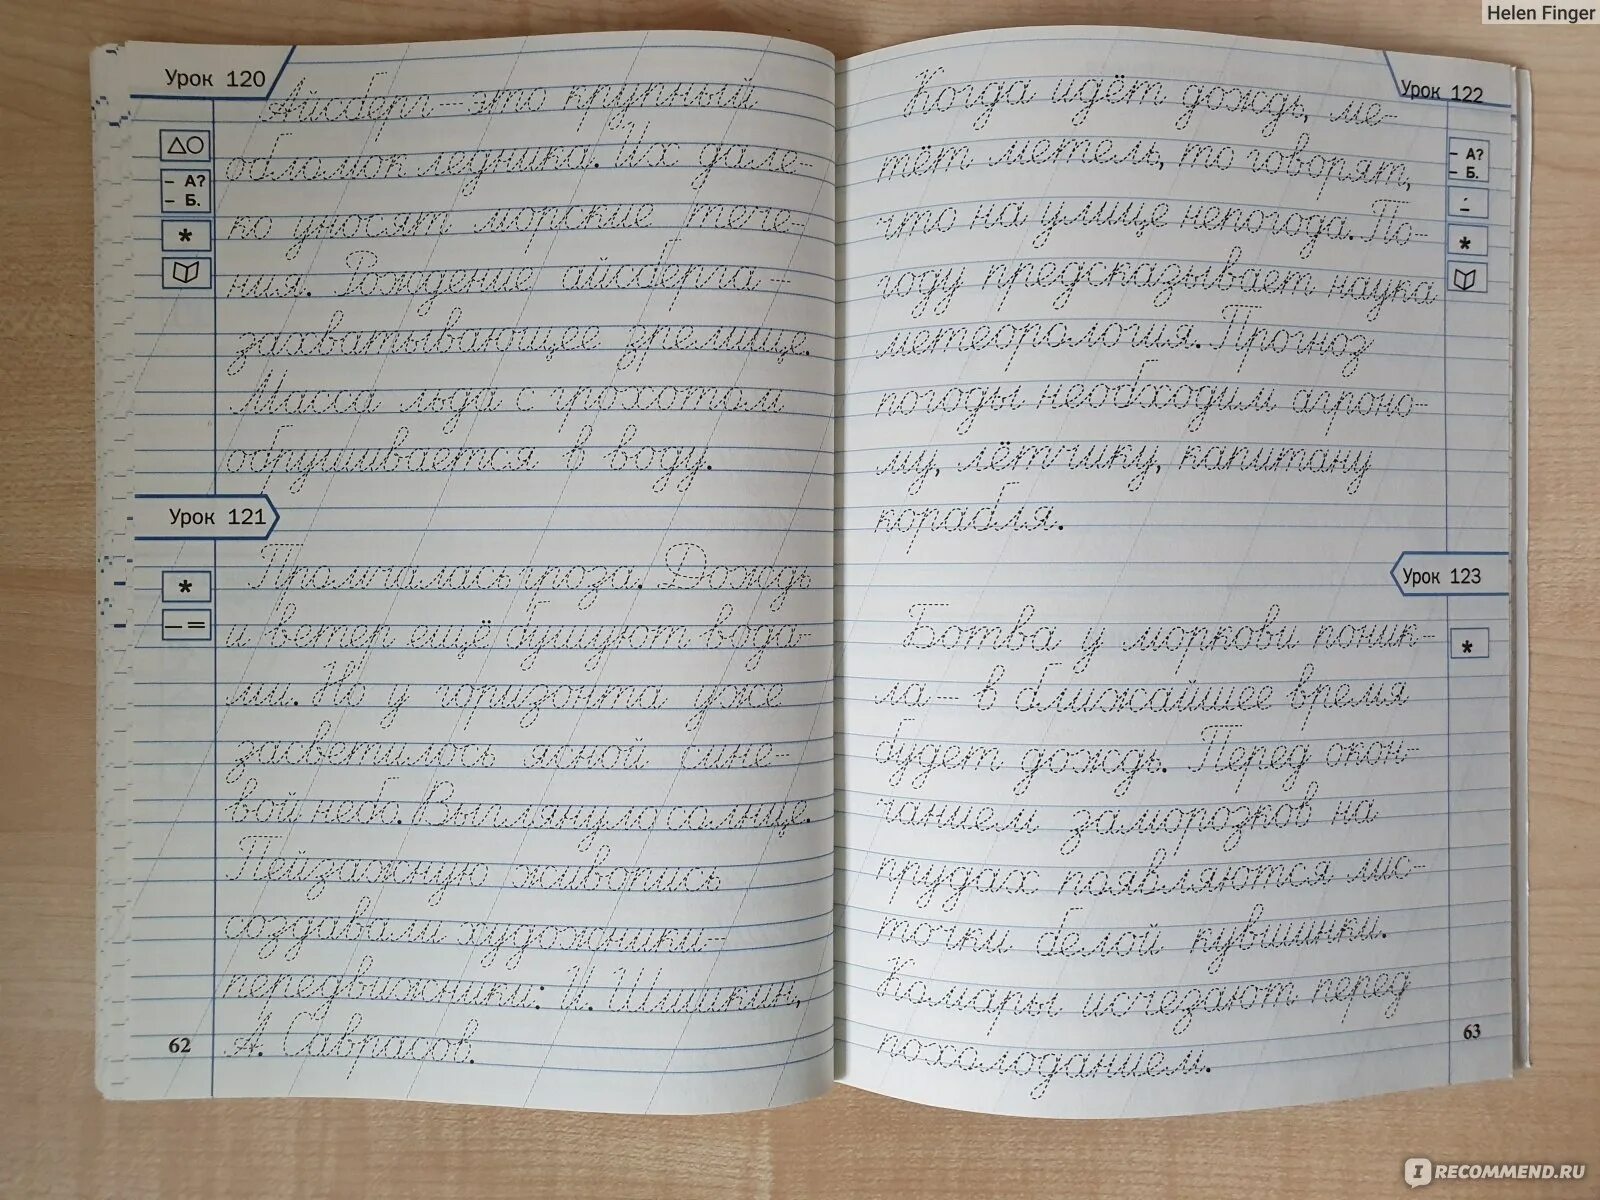 Helen Finger
Урок 120
Айсберг – это крупный
обломок ледника. Их дале-
ко уносят морские тече-
ния. Рождение айсберга –
захватывающее зрелище.
Масса льда с грохотом
обрушивается в воду.
Урок 121
Промчалась гроза. Дождь
и ветер ещё бушуют вода-
ми. Но у горизонта уже
засветилось ясной сине-
вой небо. Выглянуло солнце.
Пейзажную живопись
создавали художники-
передвижники: И. Шишкин,
А. Саврасов.
62
△○
– А?
– Б.
*
*
– =
Урок 122
Когда идёт дождь, ме-
тёт метель, то говорят,
что на улице непогода. По-
году предсказывает наука
метеорология. Прогноз
погоды необходим агроно-
му, лётчику, капитану
корабля.
Урок 123
Ботва у моркови поник-
ла – в ближайшее время
будет дождь. Перед окон-
чанием заморозков на
прудах появляются лис-
точки белой кувшинки.
Комары исчезают перед
похолоданием.
63
– А?
– Б.
*
*
IRECOMMEND.RU